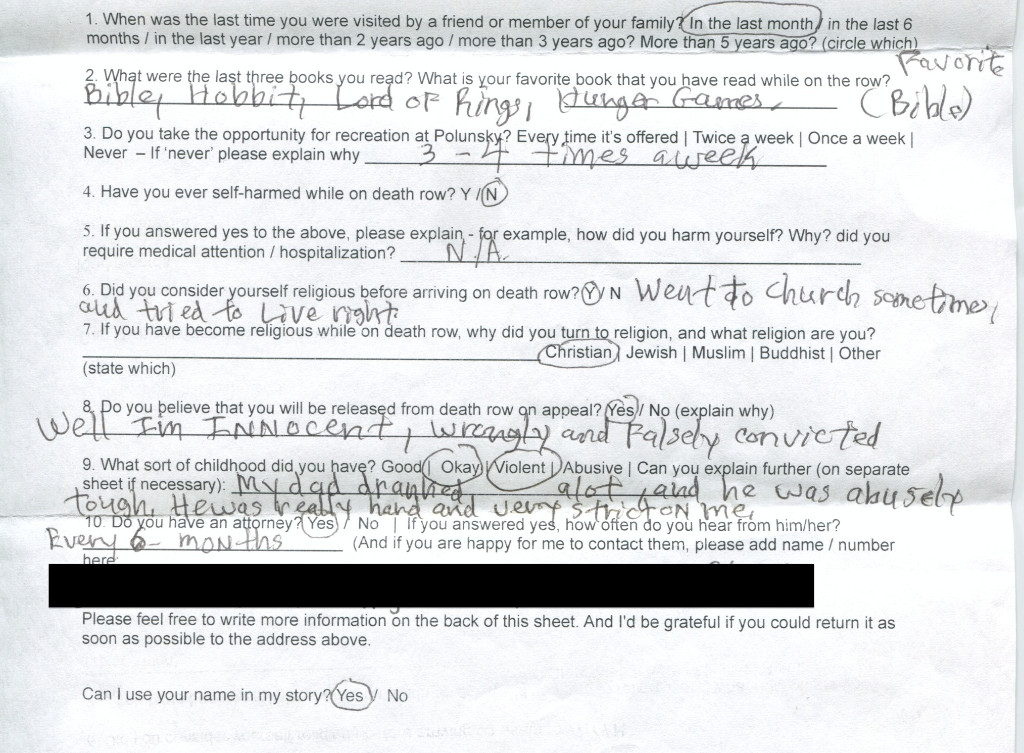 1. When was the last time you were visited by a friend or member of your family? In the last month / in the last 6
months / in the last year / more than 2 years ago / more than 3 years ago? More than 5 years ago? (circle which)
Favorite
2. What were the last three books you read? What is your favorite book that you have read while on the row?
Bible, Hobbit, Lord of Rings, Hunger Games, (Bible)
3. Do you take the opportunity for recreation at Polunsky? Every time it's offered | Twice a week | Once a week |
Never – If 'never' please explain why 3 - 4 times a week
4. Have you ever self-harmed while on death row? Y / N
5. If you answered yes to the above, please explain - for example, how did you harm yourself? Why? did you
require medical attention / hospitalization? N/A.
6. Did you consider yourself religious before arriving on death row? Y / N Went to church sometimes,
and tried to Live right.
7. If you have become religious while on death row, why did you turn to religion, and what religion are you?
Christian | Jewish | Muslim | Buddhist | Other
(state which)
8. Do you believe that you will be released from death row on appeal? Yes / No (explain why)
Well I'm INNocent, wrongly and Falsely convicted
9. What sort of childhood did you have? Good | Okay | Violent | Abusive | Can you explain further (on separate
sheet if necessary): My dad dranked alot, and he was abusely
tough, He was really hard and very strict on me,
10. Do you have an attorney? Yes / No | If you answered yes, how often do you hear from him/her?
Every 6 - months (And if you are happy for me to contact them, please add name / number
here:
Please feel free to write more information on the back of this sheet. And I'd be grateful if you could return it as
soon as possible to the address above.
Can I use your name in my story? Yes / No